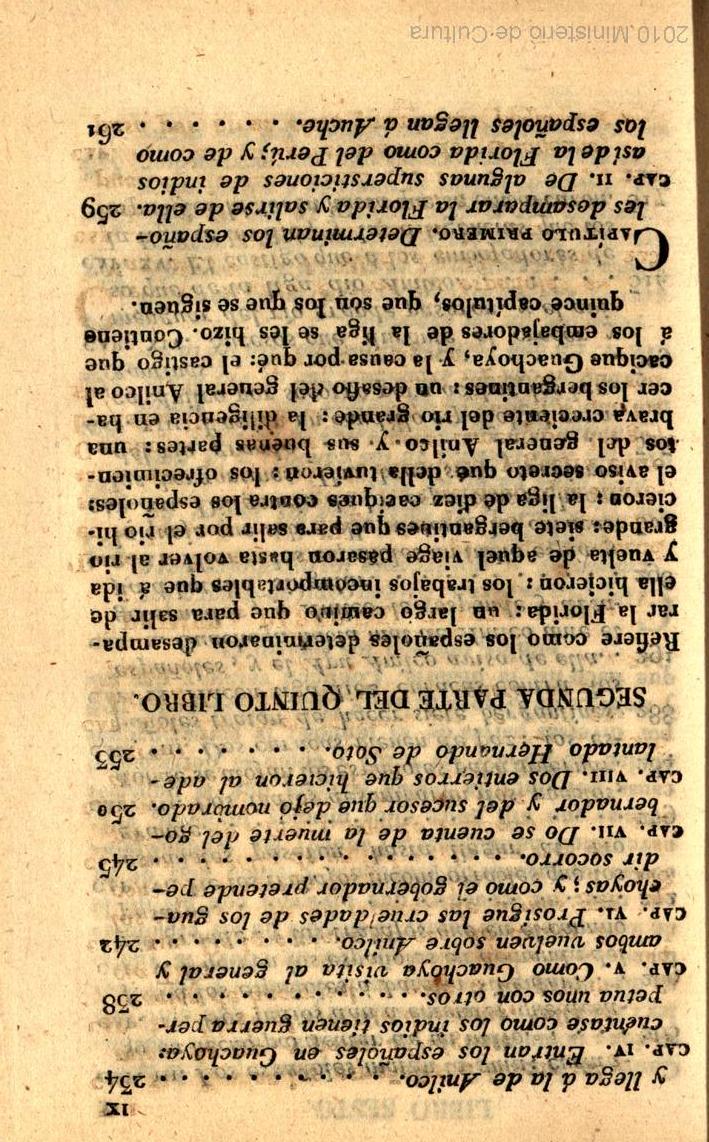 IX
y llega á la de Anilco. . . . . . . . . . 234
CAP. IV. Entran los españoles en Guachoya:
cuéntase como los indios tienen guerra per-
petua unos con otros. . . . . . . . . . 238
CAP. V. Como Guachoya visita al general y
ambos vuelven sobre Anilco. . . . . . . . 242
CAP. VI. Prosigue las crueldades de los gua-
choyas; y como el gobernador pretende pe-
dir socorro. . . . . . . . . . . . . . . 245
CAP. VII. Do se cuenta de la muerte del go-
bernador y del sucesor que dejó nombrado. 250
CAP. VIII. Dos entierros que hicieron al ade-
lantado Hernando de Soto. . . . . . . . 253
SEGUNDA PARTE DEL QUINTO LIBRO.
Refiere como los españoles determinaron desampa-
rar la Florida: un largo camino que para salir de
ella hicieron: los trabajos incomportables que á ida
y vuelta de aquel viage pasaron hasta volver al rio
grande: siete bergantines que para salir por el rio hi-
cieron: la liga de diez caciques contra los españoles:
el aviso secreto que della tuvieron: los ofrecimien-
tos del general Anilco y sus buenas partes: una
brava creciente del rio grande: la diligencia en ha-
cer los bergantines: un desafio del general Anilco al
cacique Guachoya, y la causa por qué: el castigo que
á los embajadores de la liga se les hizo. Contiene
quince capítulos, que son los que se siguen.
CAPÍTULO PRIMERO. Determinan los españo-
les desamparar la Florida y salirse de ella. 259
CAP. II. De algunas supersticiones de indios
asi de la Florida como del Perú; y de como
los españoles llegan á Auche. . . . . . . 261
2010.Ministerio de Cultura